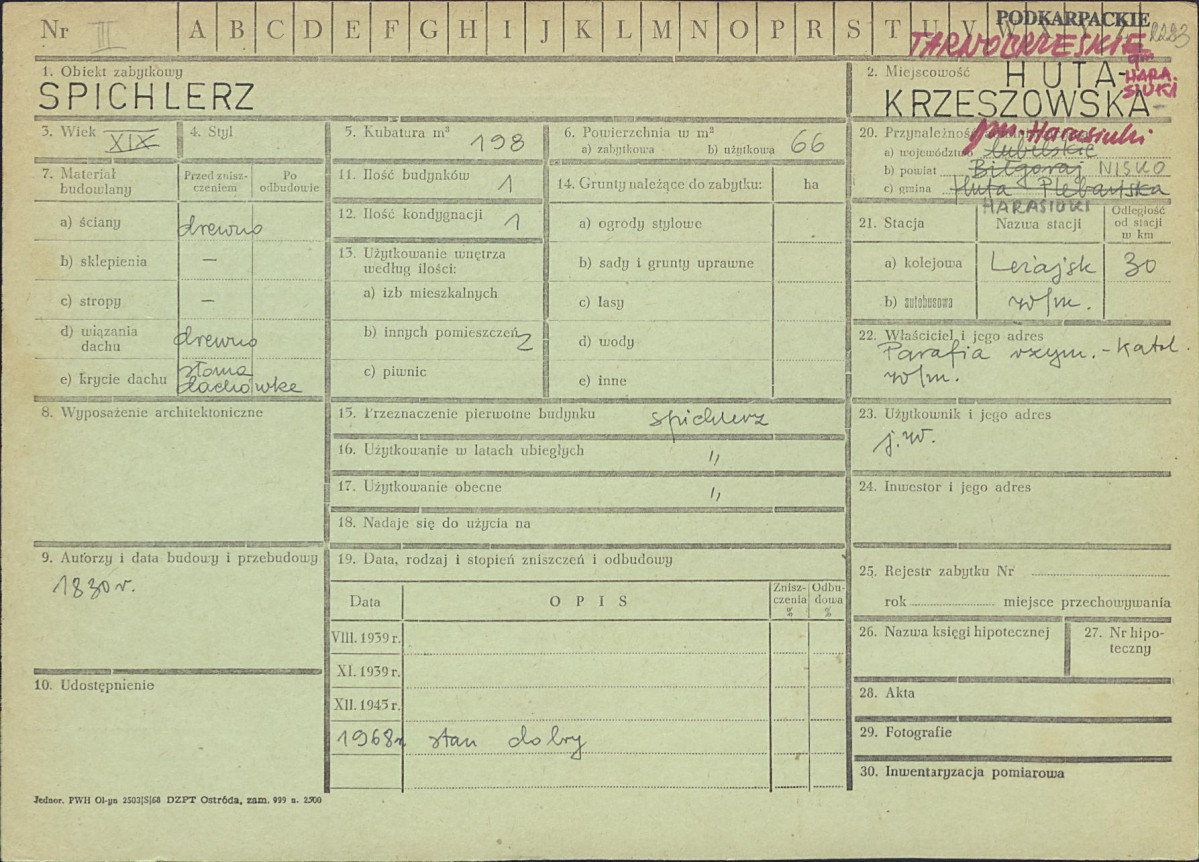 Nr III A B C D E F G H I J K L M N O P R S T U V W
PODKARPACKIE
2223
TARNOBRZESKIE
gm HARASIUKI
1. Obiekt zabytkowy
SPICHLERZ
2. Miejscowość
HUTA-
KRZESZOWSKA
3. Wiek XIX
4. Styl
5. Kubatura m³ 198
6. Powierzchnia w m²
a) zabytkowa b) użytkowa 66
7. Materiał budowlany
Przed zniszczeniem
Po odbudowie
a) ściany drewno
b) sklepienia –
c) stropy –
d) wiązania dachu drewno
e) krycie dachu słoma dachówka
8. Wyposażenie architektoniczne
9. Autorzy i data budowy i przebudowy
1830 r.
10. Udostępnienie
11. Ilość budynków 1
12. Ilość kondygnacji 1
13. Użytkowanie wnętrza według ilości:
a) izb mieszkalnych
b) innych pomieszczeń 2
c) piwnic
14. Grunty należące do zabytku: ha
a) ogrody stylowe
b) sady i grunty uprawne
c) lasy
d) wody
e) inne
15. Przeznaczenie pierwotne budynku spichlerz
16. Użytkowanie w latach ubiegłych "
17. Użytkowanie obecne "
18. Nadaje się do użycia na
19. Data, rodzaj i stopień zniszczeń i odbudowy
Data
OPIS
Zniszczenia %
Odbudowa %
VIII. 1939 r.
XI. 1939 r.
XII. 1945 r.
1968 r. stan dobry
20. Przynależność
gm. Harasiuki
a) województwo lubelskie
b) powiat Biłgoraj NISKO
c) gmina Huta Plebańska
HARASIUKI
21. Stacja
Nazwa stacji
Odległość od stacji w km
a) kolejowa Leżajsk 30
b) autobusowa w/m.
22. Właściciel i jego adres
Parafia rzym.-katol.
w/m.
23. Użytkownik i jego adres
j.w.
24. Inwestor i jego adres
25. Rejestr zabytku Nr
rok miejsce przechowywania
26. Nazwa księgi hipotecznej
27. Nr hipoteczny
28. Akta
29. Fotografie
30. Inwentaryzacja pomiarowa
Jednor. PWH Ol-yn 2503|S|68 DZPT Ostróda, zam. 999 n. 2500